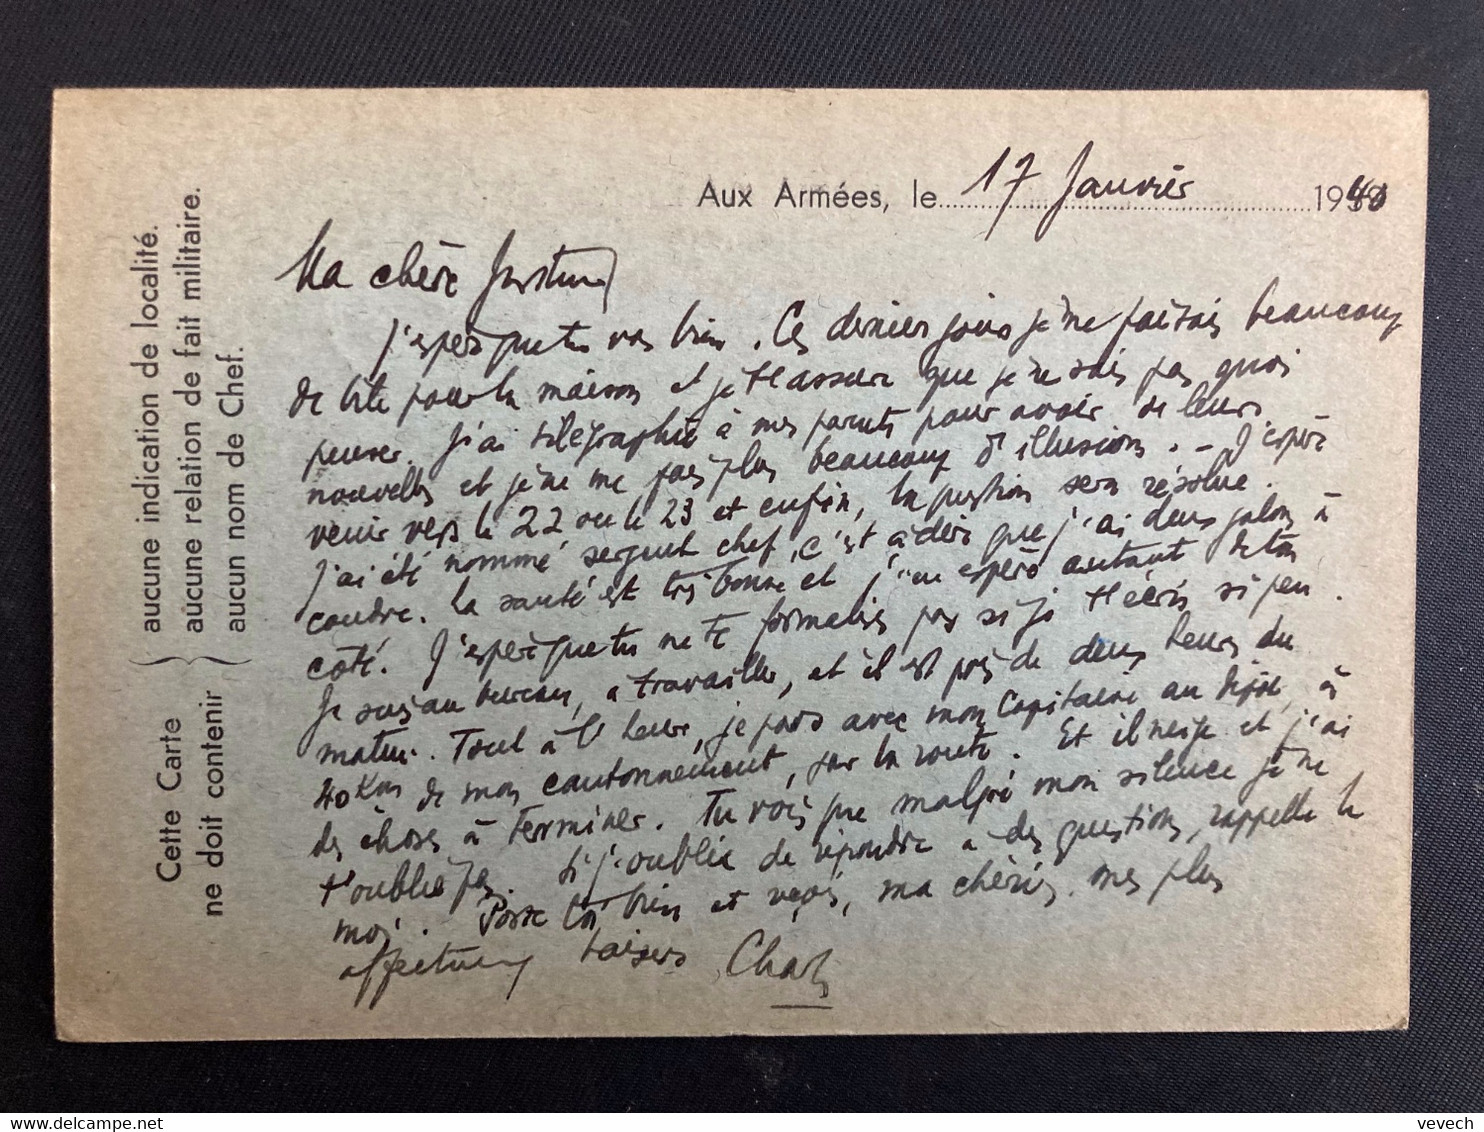 Aux Armées, le 17 Janvier 1940
Ma chère
J'espère que tu vas bien. Ces derniers jours je me faisais beaucoup
de bile pour la maison et je t'assure que je ne sais pas quoi
penser. J'ai télégraphié à mes parents pour avoir de leurs
nouvelles et je ne me fais plus beaucoup d'illusions. - J'espère
venir vers le 22 ou le 23 et enfin, la question sera résolue.
J'ai été nommé sergent chef, c'est à dire que j'ai deux galons à
coudre. La santé est très bonne et j'en espère autant de ton
côté. J'espère que tu ne te formalises pas si je t'écris si peu.
Je suis au bureau, à travailler, et il est près de deux heures du
matin. Tout à l'heure, je pars avec mon Capitaine au à
40 Kms de mon cantonnement, sur la route. Et il neige et j'ai
des choses à terminer. Tu vois que malgré mon silence je ne
t'oublie pas. Si j'oublie de répondre à des questions, rappelle le
moi. Porte toi bien et reçois, ma chérie, mes plus
affectueux baisers Charles
Cette Carte
ne doit contenir
aucune indication de localité.
aucune relation de fait militaire.
aucun nom de Chef.
vevech